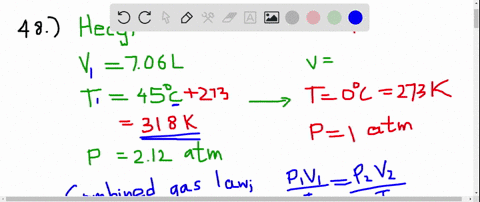 48.) Heay,
V₁ = 7.06 L
T₁ = 45°C + 273
= 318 K
P = 2.12 atm
V =
T = 0°C = 273 K
P = 1 atm
Combined gas law; P₁V₁ = P₂V₂